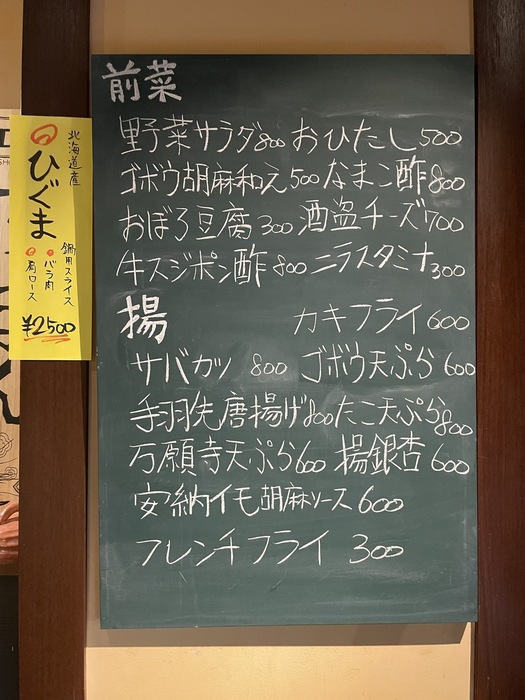 前菜
野菜サラダ800 おひたし500
ゴボウ胡麻和え500 なまこ酢800
おぼろ豆腐300 酒盗チーズ700
牛スジポン酢800 ニラスタミナ300
揚 カキフライ600
サバカツ 800 ゴボウ天ぷら600
手羽先唐揚げ800 たこ天ぷら800
万願寺天ぷら600 揚銀杏600
安納イモ胡麻ソース600
フレンチフライ 300
北海道産
ひぐま
鍋用スライス
バラ肉
肩ロース
¥2500